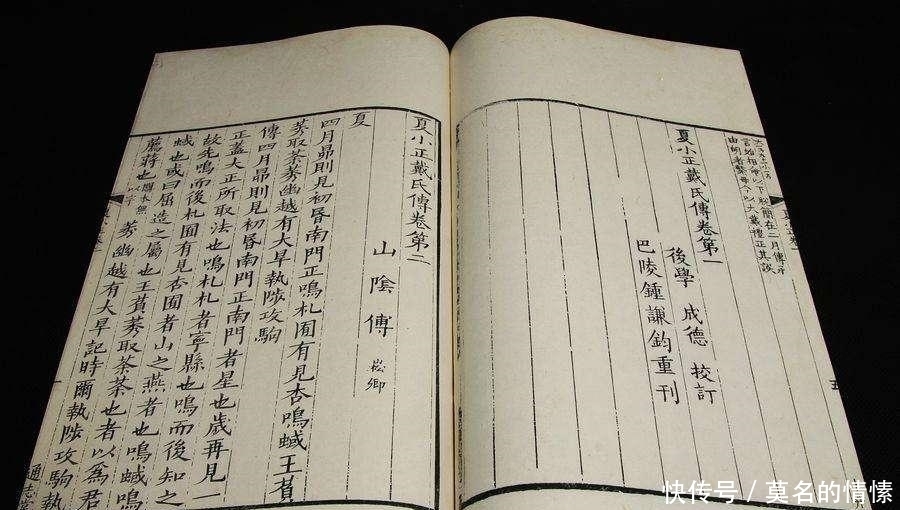 言始相命以下脫簡在二月傳
以大戴禮正其誤
夏小正戴氏傳卷第一
後學 成德 校訂
巴陵鍾謙鈞重刊
五
夏小正戴氏傳卷第二
山陰傅 崧卿
夏
四月昴則見初昏南門正鳴札囿有見杏鳴蜮王萯
莠取荼莠幽越有大旱執陟攻駒
傳四月昴則見初昏南門正南門者星也歲再見一
正蓋大正所取法也鳴札札者寧縣也鳴而後知之
故先鳴而後札囿有見杏囿者山之燕者也鳴蜮鳴
蜮也或曰屈造之屬也王萯莠取荼荼也者以爲君
薦蔣也關本無以字莠幽越有大旱記時爾執陟攻駒執
通志
快传号/莫名的情愫